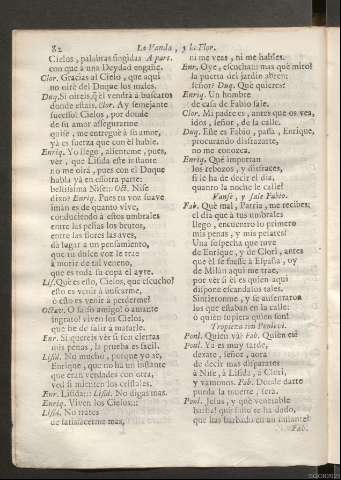 82 La Vanda, y la Flor.
Cielos, palabras fingidas A part.
con que à una Deydad engañe.
Clor. Gracias al Cielo, que aqui
no oirè del Duque los males.
Duq. Si oireis, q̃ èl vendrà à buscaros
donde estais. Clor. Ay semejante
sucesso! Cielos, por donde
de su amor assegurarme
quise, me entreguè à su amor,
yà es fuerza que con èl hable.
Enriq. Yo llego, alientome, pues,
vèr, que Lisida este instante
no me oirà, pues con el Duque
habla yà en estotra parte:
bellissima Nise::: Oct. Nise
dixo? Enriq. Pues tu voz suave
imàn es de quanto vive,
conduciendo à estos umbrales
entre las peñas los brutos,
entre las flores las aves,
dà lugar à un pensamiento,
que tu dulce voz le trae
à morir de tal veneno,
que es toda su copa el ayre.
Lis. Què es esto, Cielos, que escucho?
esto es venir à buscarme,
ò esto es venir à perderme?
Octav. O falso amigo! ò amante
ingrato! viven los Cielos,
que he de salir à matarle.
Enr. Si quereis vèr si son ciertas
mis penas, la prueba es facil.
Lisid. No mucho, porque yo sè,
Enrique, que no ha un instante
que eran verdades con otra,
ved si mienten los cristales.
Enr. Lisida::: Lisid. No digas mas.
Enriq. Viven los Cielos:::
Lisid. No trates
de satisfacerme mas,
ni me veas, ni me hables.
Enr. Oye, escucha: mas què miro!
la puerta del jardin abren:
señor? Duq. Què quieres?
Enriq. Un hombre
de casa de Fabio sale.
Clor. Mi padre es, antes que os vea,
idos, señor, de la calle.
Duq. Esse es Fabio, passa, Enrique,
procurando disfrazarte,
no me conozca.
Enriq. Què importan
los rebozos, y disfraces,
si le ha de decir el dia,
quanto la noche le calle?
Vanse, y sale Fabio.
Fab. Què mal, Patria, me recibes;
el dia que à tus umbrales
llego, encuentro lo primero
mis penas, y mis pesares!
Una sospecha que tuve
de Enrique, y de Clori, antes
que èl se fuesse à España, oy
de Milàn aqui me trae,
por vèr si es èl quien aqui
dispone escandalos tales.
Sintieronme, y se ausentaron
los que estaban en la calle:
ò quien supiera quien son!
Tropieza con Ponlevì.
Ponl. Quien và? Fab. Quien es?
Ponl. Yà es muy tarde,
dexate, señor, aora
de decir mas disparates
à Nise, à Lisida, à Clori,
y vamonos. Fab. Donde darte
pueda la muerte, serà.
Ponl. Jesus, y què venerable
barba! què susto se ha dado,
que has barbado en un instante!
Fab.